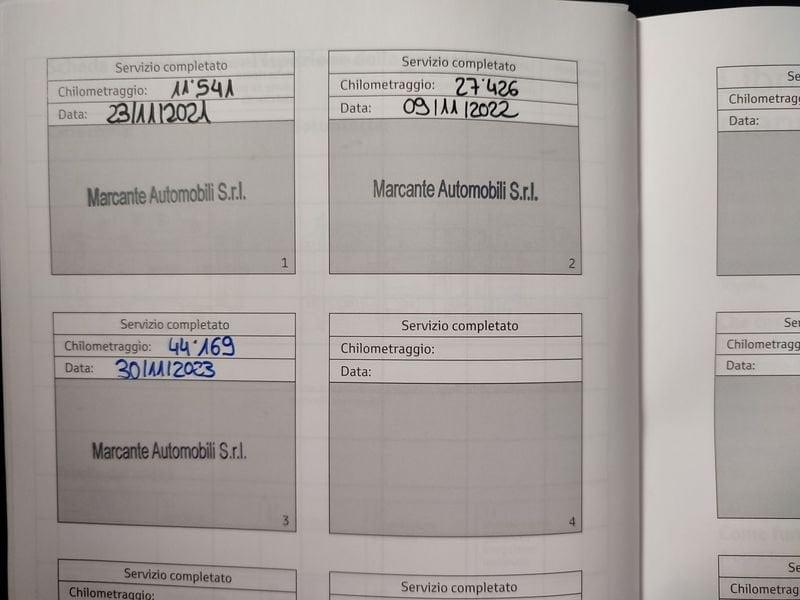 Servizio completato
Chilometraggio: 11'541
Data: 23/11/2021
Marcante Automobili S.r.l.
1
Servizio completato
Chilometraggio: 27'426
Data: 09/11/2022
Marcante Automobili S.r.l.
2
Servizio completato
Chilometraggio: 44'169
Data: 30/11/2023
Marcante Automobili S.r.l.
3
Servizio completato
Chilometraggio:
Data:
4
Servizio completato
Chilometraggio:
Servizio completato
Data:
Data: